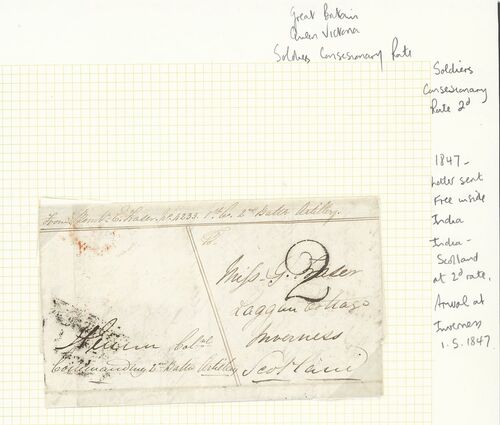 Great Britain
Queen Victoria
Soldiers Consessionary Rate
Soldiers
Consessionary
Rate 2d
1847 -
Letter sent
Free inside
India
India -
Scotland
at 2d rate.
Arrival at
Inverness
1.5.1847
From E. Fraser No 4233 1st Co. 2nd Batln Artillery.
To
Miss G. Fraser
2
Laggan Cottage
Inverness
Scotland
Col
Commanding 2nd Batln Artillery